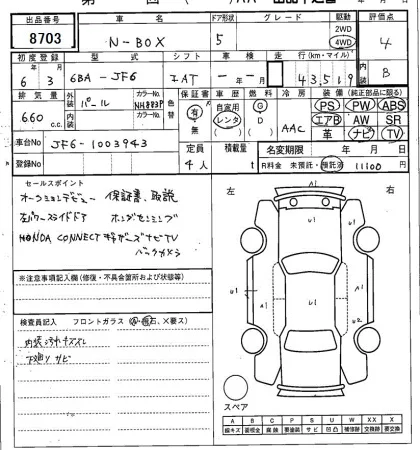 出品番号 車名 ドア形状 グレード 駆動 評価点
8703 N-BOX 5 2WD 4WD 4
初度登録 型式 シフト 車検 走行(km・マイル) 内装
6年3月 6BA-JF6 IAT 年 月 43,519 B
排気量 外装 パール カラーNo. NH883P 色替 保証書 車歴 燃料 冷房 装備(純正部品に限る)
660 c.c. 内装 カラーNo. 有 無 自家用 レンタ G D AAC PS PW ABS
エアB AW SR
革 ナビ TV
車台No. JF6-1003943 定員 積載量 名変期限 年 月 日
登録No. 4人 t R料金 未預託・預託済 11100
セールスポイント
オークションデビュー 保証書、取説
左パワースライドドア ホンダセンシング
HONDA CONNECT ナビTV
バックカメラ
※注意事項記入欄(修復・不具合箇所および状態等)
検査員記入 フロントガラス(A・飛石、X要ス)
内装汚れキズスレ
下廻りサビ
左 右
A1
U1 U1
U1 A1 U1 A1 U1
U1 U2
A1
スペア
A B C P S U W X XX
線キズ 要板金 腐蝕 要塗装 サビ 凹凸 補修跡 要交換 交換済